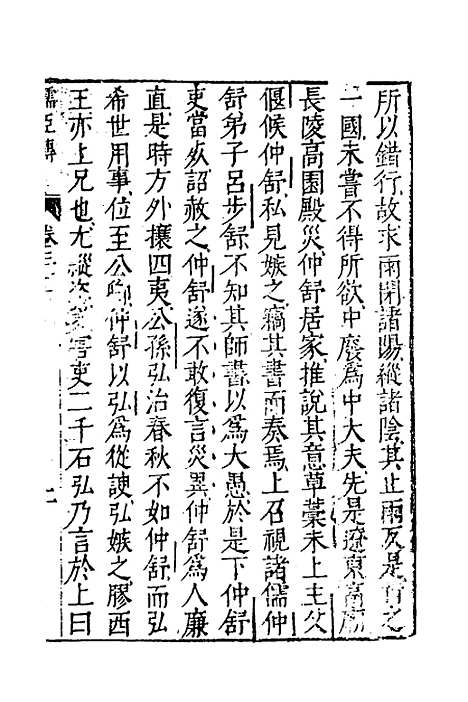 所以錯行故求雨閉諸陽縱諸陰其止雨反是行之
一國未嘗不得所欲中廢為中大夫先是遼東高廟
長陵高園殿災仲舒居家推說其意草藁未上主父
偃候仲舒私見嫉之竊其書而奏焉上召視諸儒仲
舒弟子呂步舒不知其師書以為大愚於是下仲舒
吏當死詔赦之仲舒遂不敢復言災異仲舒為人廉
直是時方外攘四夷公孫弘治春秋不如仲舒而弘
希世用事位至公卿仲舒以弘為從諛弘嫉之膠西
王亦上兄也尤縱恣害吏二千石弘乃言於上曰
儒臣傳 卷三